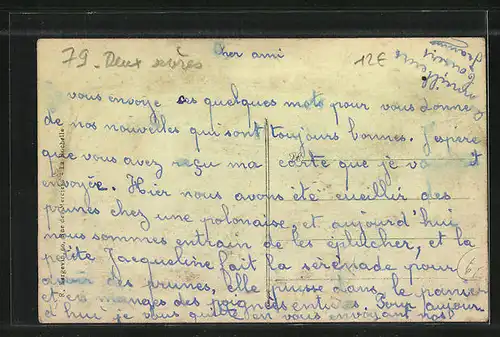 79 - Deux sèvres
cher ami
12€
meilleurs
baisers
vous envoye ces quelques mots pour vous donnez
de nos nouvelles qui sont toujours bonnes. J'espère
que vous avez reçu ma carte que je vous et
envoyée. Hier nous avons été cueillir des
prunes chez une polonaise, et aujourd'hui
nous sommes entrain de les éplucher, et la
petite Jacqueline fait la sérénade pour
avoir des prunes, elle puise dans le panier
et en manges des poignées entières. Pour aujour
d'hui je vous quitte en vous envoyant nos
La Rochelle